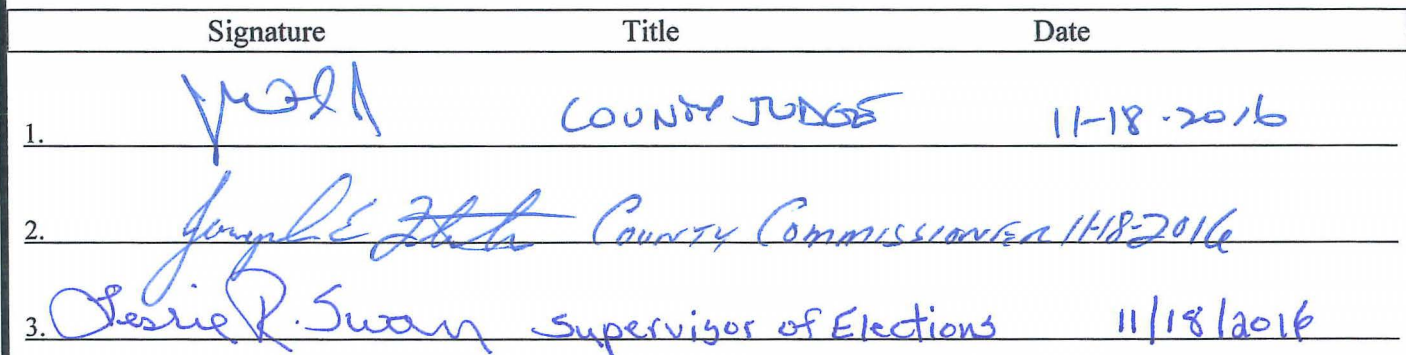 Signature Title Date
1. COUNTY JUDGE 11-18-2016
2. Joseph E County Commissioner 11-18-2016
3. Leslie R. Swan Supervisor of Elections 11/18/2016